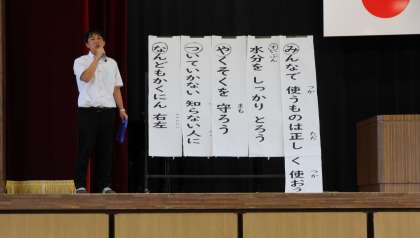 みんなで 使うものは正しく 使おう
水分を しっかり とろう
やくそくを 守ろう
ついていかない 知らない人に
なんどもかくにん 右左